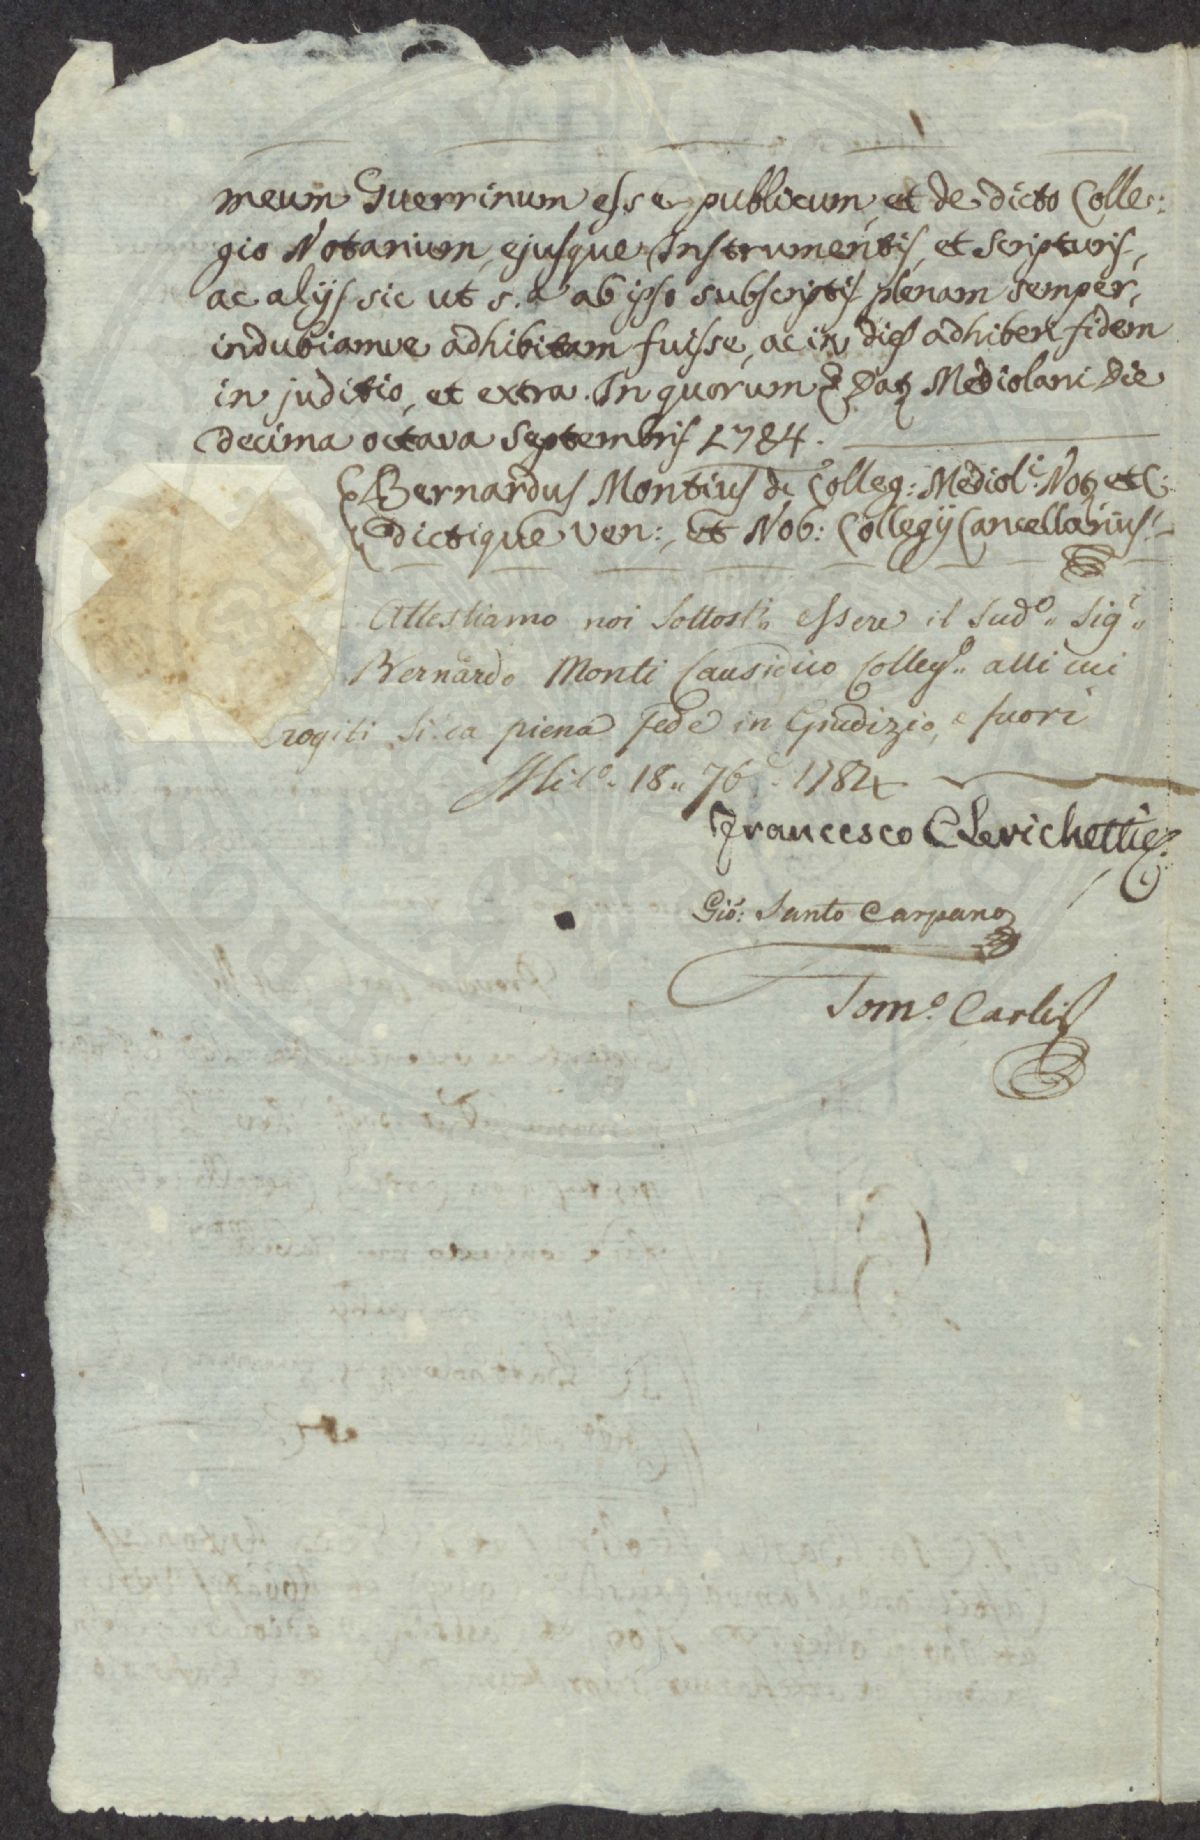 meum Guerrinum esse publicum, et de dicto Colle-:
gio Notarium, ejusque Instrumentis, et scripturis,
ac alijs sic ut s.a ab ipso subscriptis plenam semper,
indubiamve adhibitam fuisse, ac in dies adhiberi fidem
in juditio, et extra. In quorum Dat Mediolani die
decima octava Septembris 1784.
Bernardus Montius de Colleg: Mediol.i Not et C:
dictique Ven:, et Nob: Collegij Cancellarius
Attestiamo noi sottosti essere il sud.o sig.r
Bernardo Monti Causidico Colleg.o alli cui
rogiti si da piena fede in Giudizio, e fuori
Mil.o 18 7b 1784
Francesco Clerichetti
Gio: Santo Carpano
Tom.o Carli